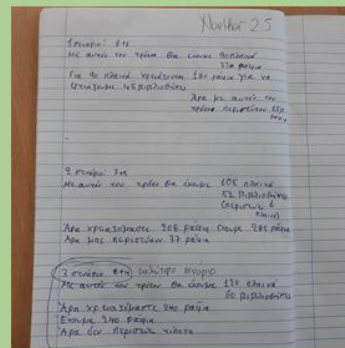 Number 25
1 σενάριο: 6+8
Με αυτόν τον τρόπο θα έχουμε 90 πλαϊνά
330 ράφια
Για 90 πλαϊνά χρειάζονται 180 ράφια για να
φτιάξουμε 45 βιβλιοθήκες
Άρα με αυτόν τον
τρόπο περισσεύουν 150
ράφια
2 σενάριο: 7+8
Με αυτόν τον τρόπο θα έχουμε 105 πλαϊνά
52 βιβλιοθήκες
(περισσεύει 1
πλαϊνό)
Άρα χρειαζόμαστε 208 ράφια έχουμε 285 ράφια
Άρα μας περισσεύουν 77 ράφια
3 σενάριο 8+4 καλύτερο σενάριο
Με αυτόν τον τρόπο θα έχουμε 120 πλαϊνά
60 βιβλιοθήκες
Άρα χρειαζόμαστε 240 ράφια
Έχουμε 240 ράφια
Άρα δεν περισσεύει τίποτα